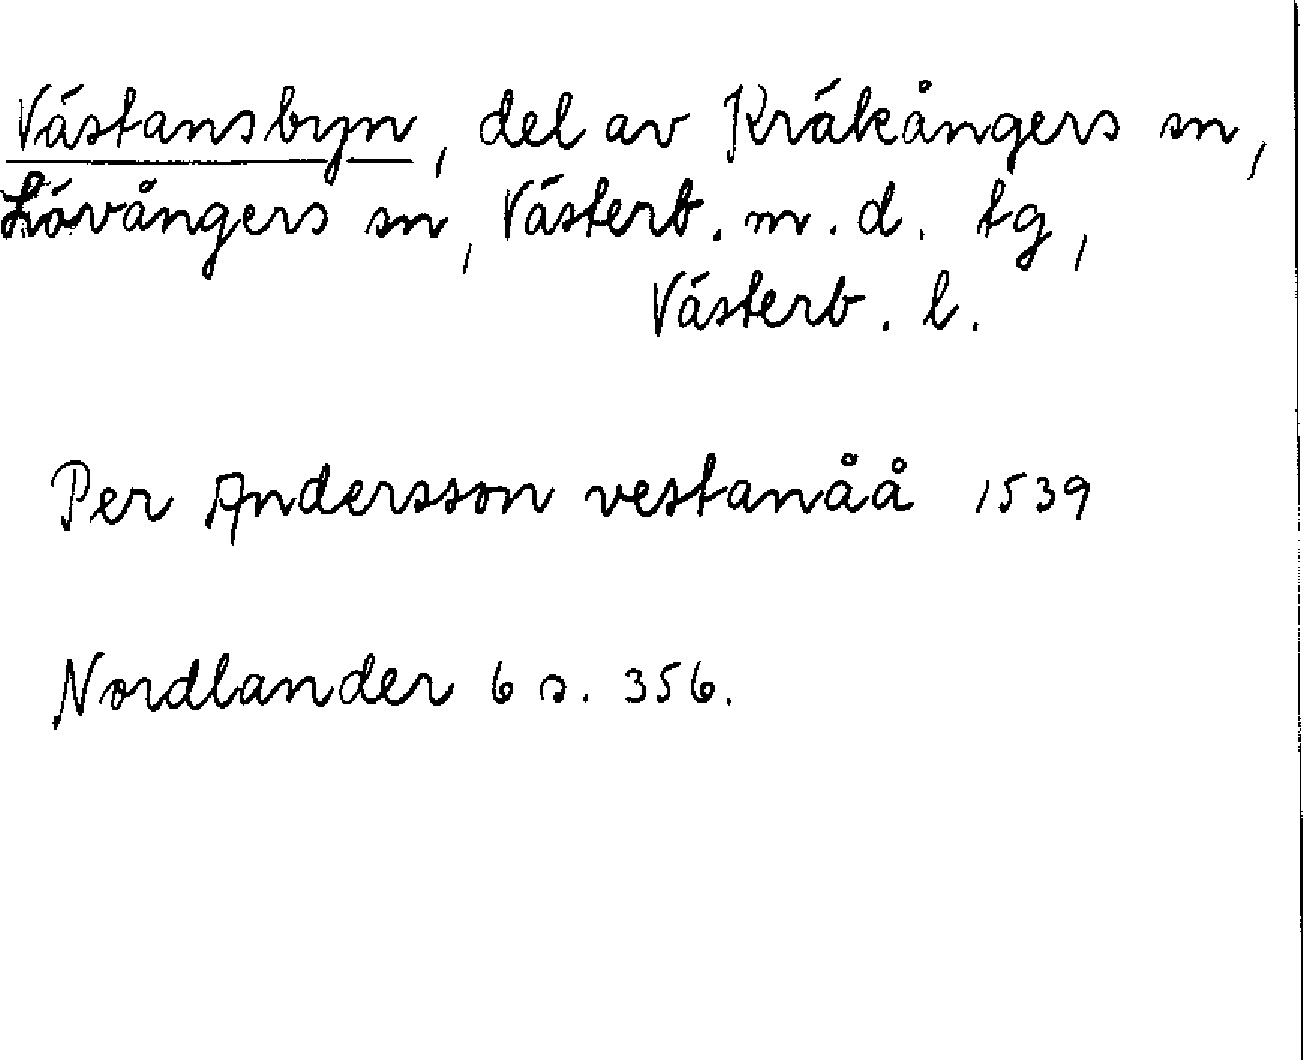 Västansbyn, del av Kräkångers sn,
Lövångers sn, Västerb. m. d. tg,
Västerb. l.
Per Andersson vestanåå 1539
Nordlander 6 s. 356.